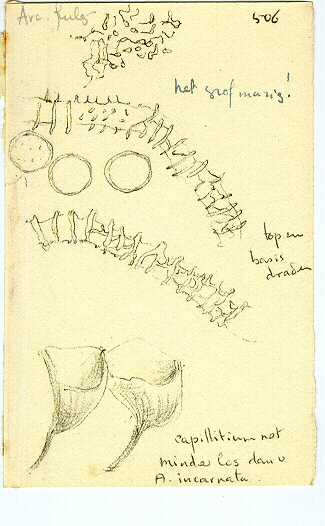 Arc. fulg
506
net grof mazig!
top en
basis
draden
capillitium net
minder los dan v
A. incarnata.